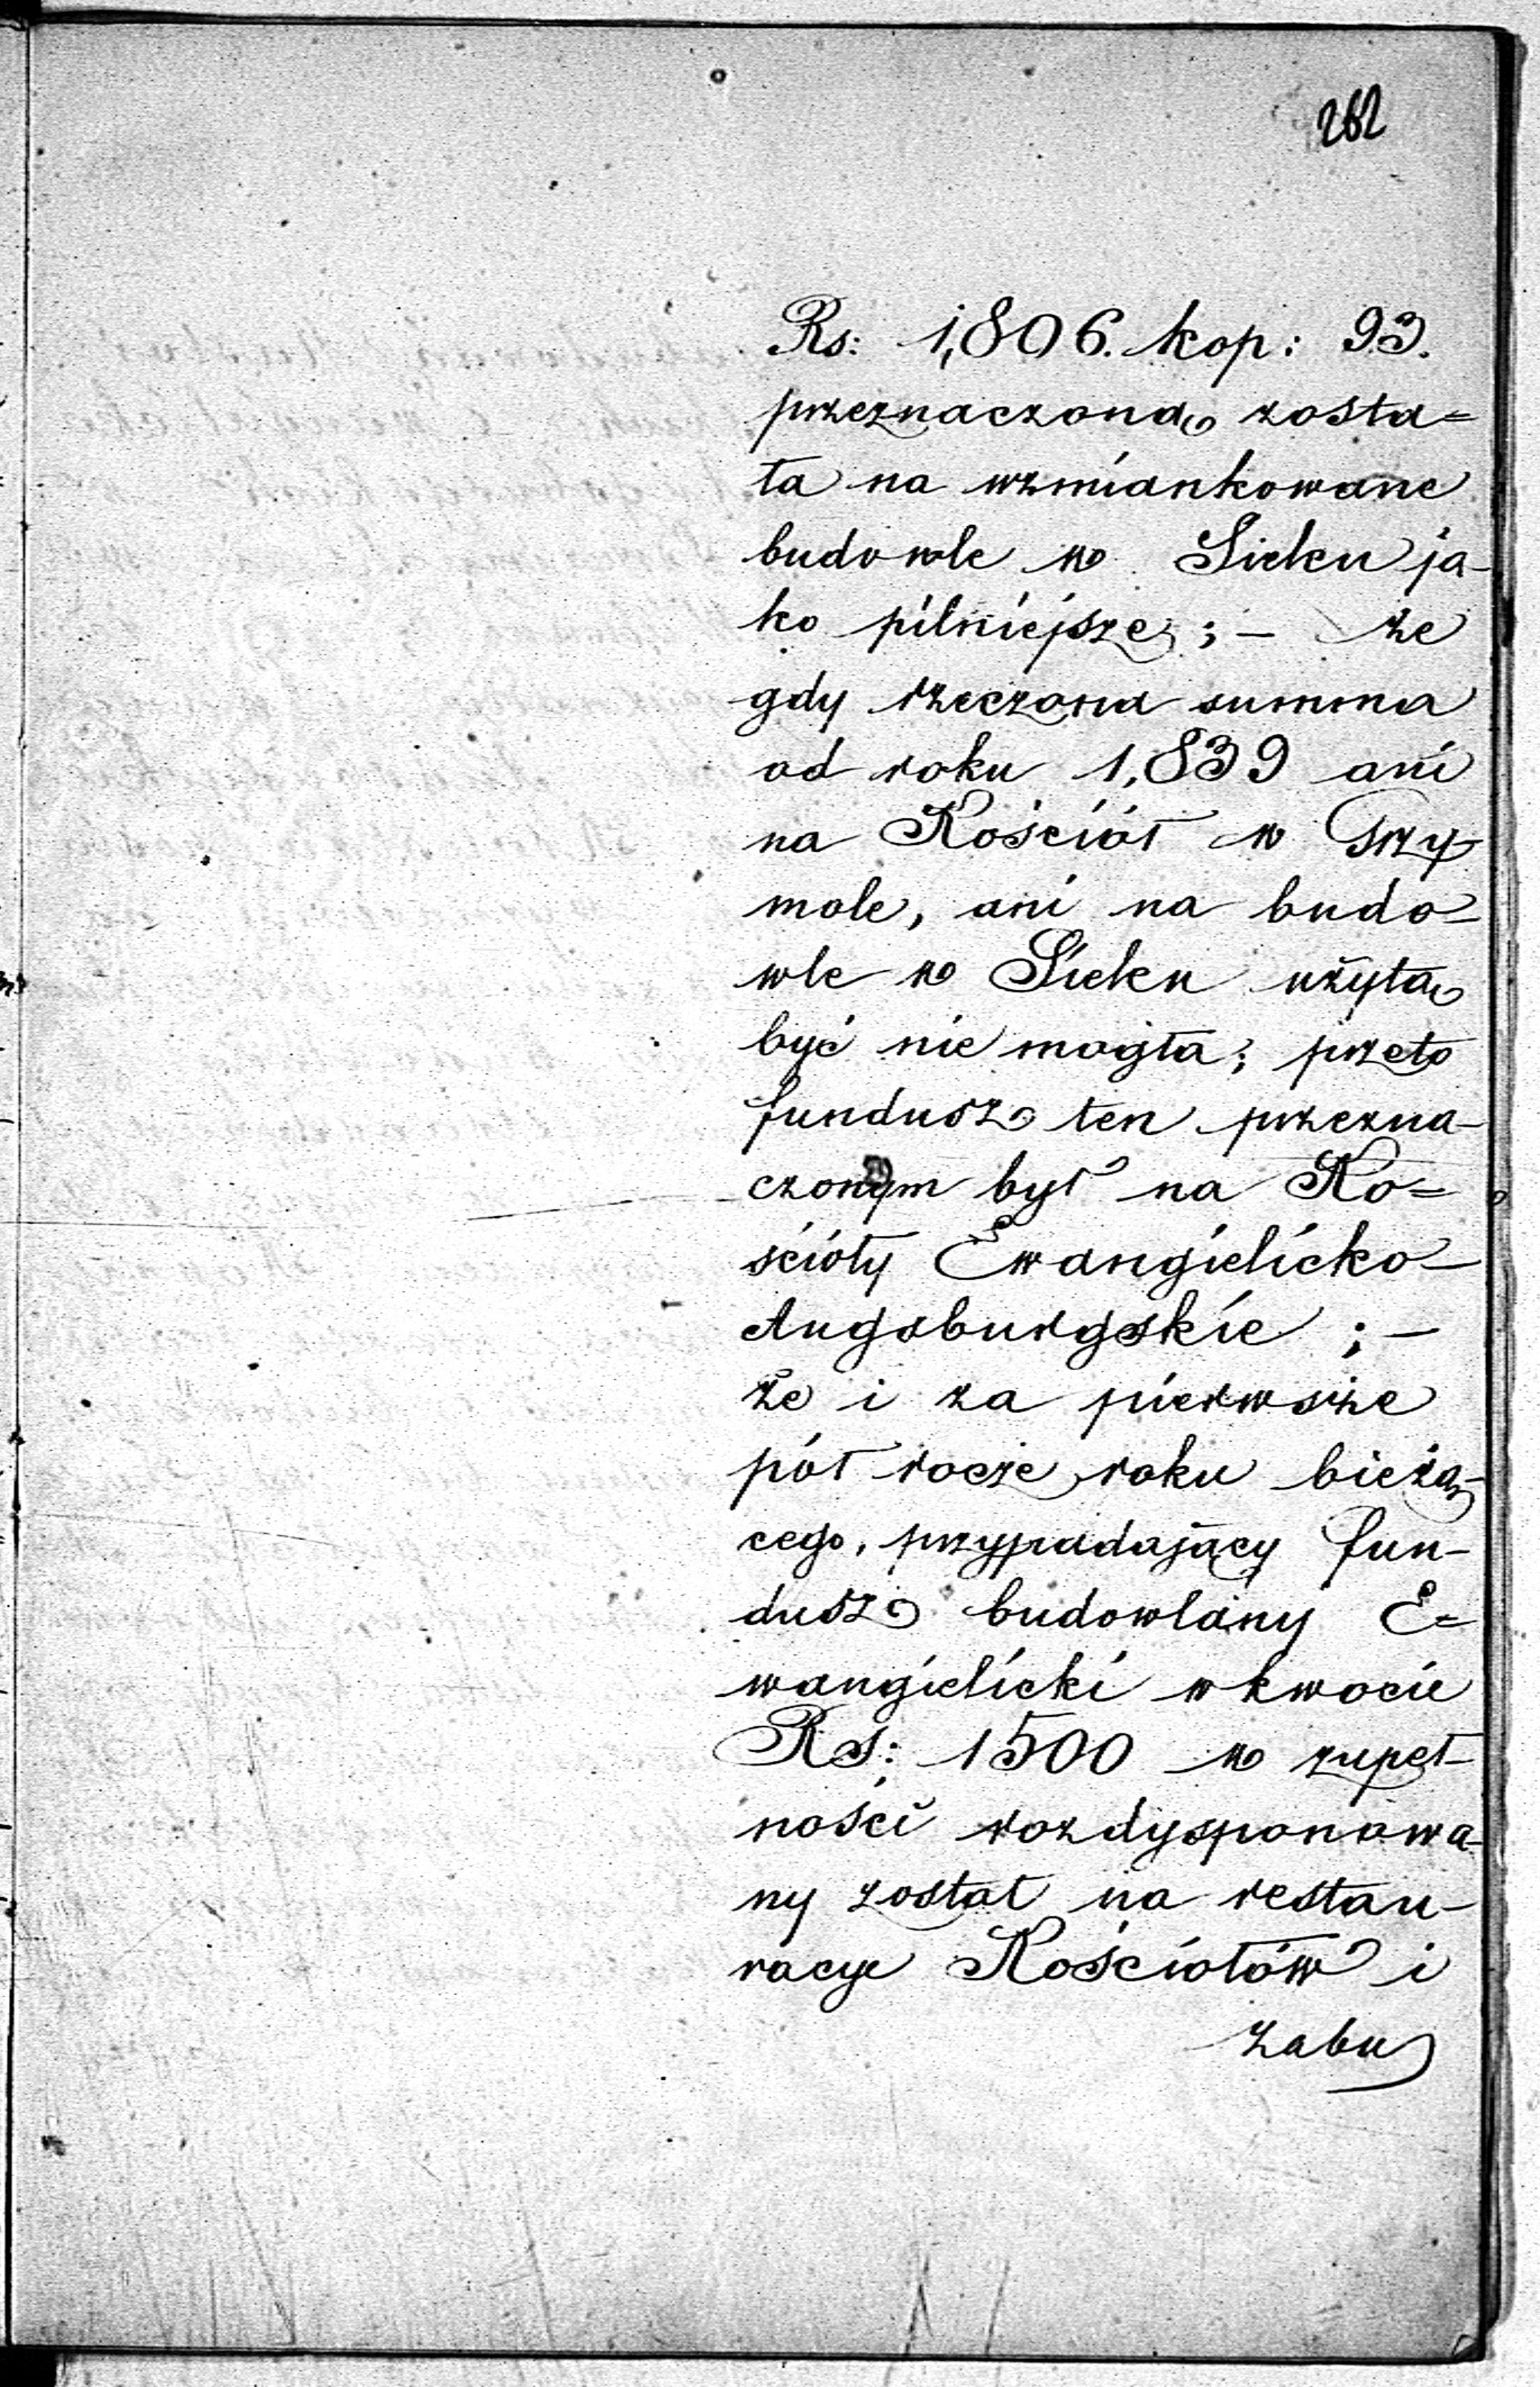 262
Rs: 1,806. kop: 93.
przeznaczona zosta=
ła na wzmiankowane
budowle w Sieku ja-
ko pilniejsze; — że
gdy rzeczona summa
od roku 1,839 ani
na Kościół w Przy
mole, ani na budo-
wle w Sieku użyta
być nie mogła; przeto
fundusz ten przezna-
czonym był na Ko=
ścioły Ewangielicko-
Augsburgskie ; —
że i za pierwsze
pół rocze roku bieżą-
cego, przypadający fun-
dusz budowlany E=
wangielicki w kwocie
RS: 1500 w zupeł-
ności rozdysponowa-
ny został na restau-
racye Kościołów i
zabu